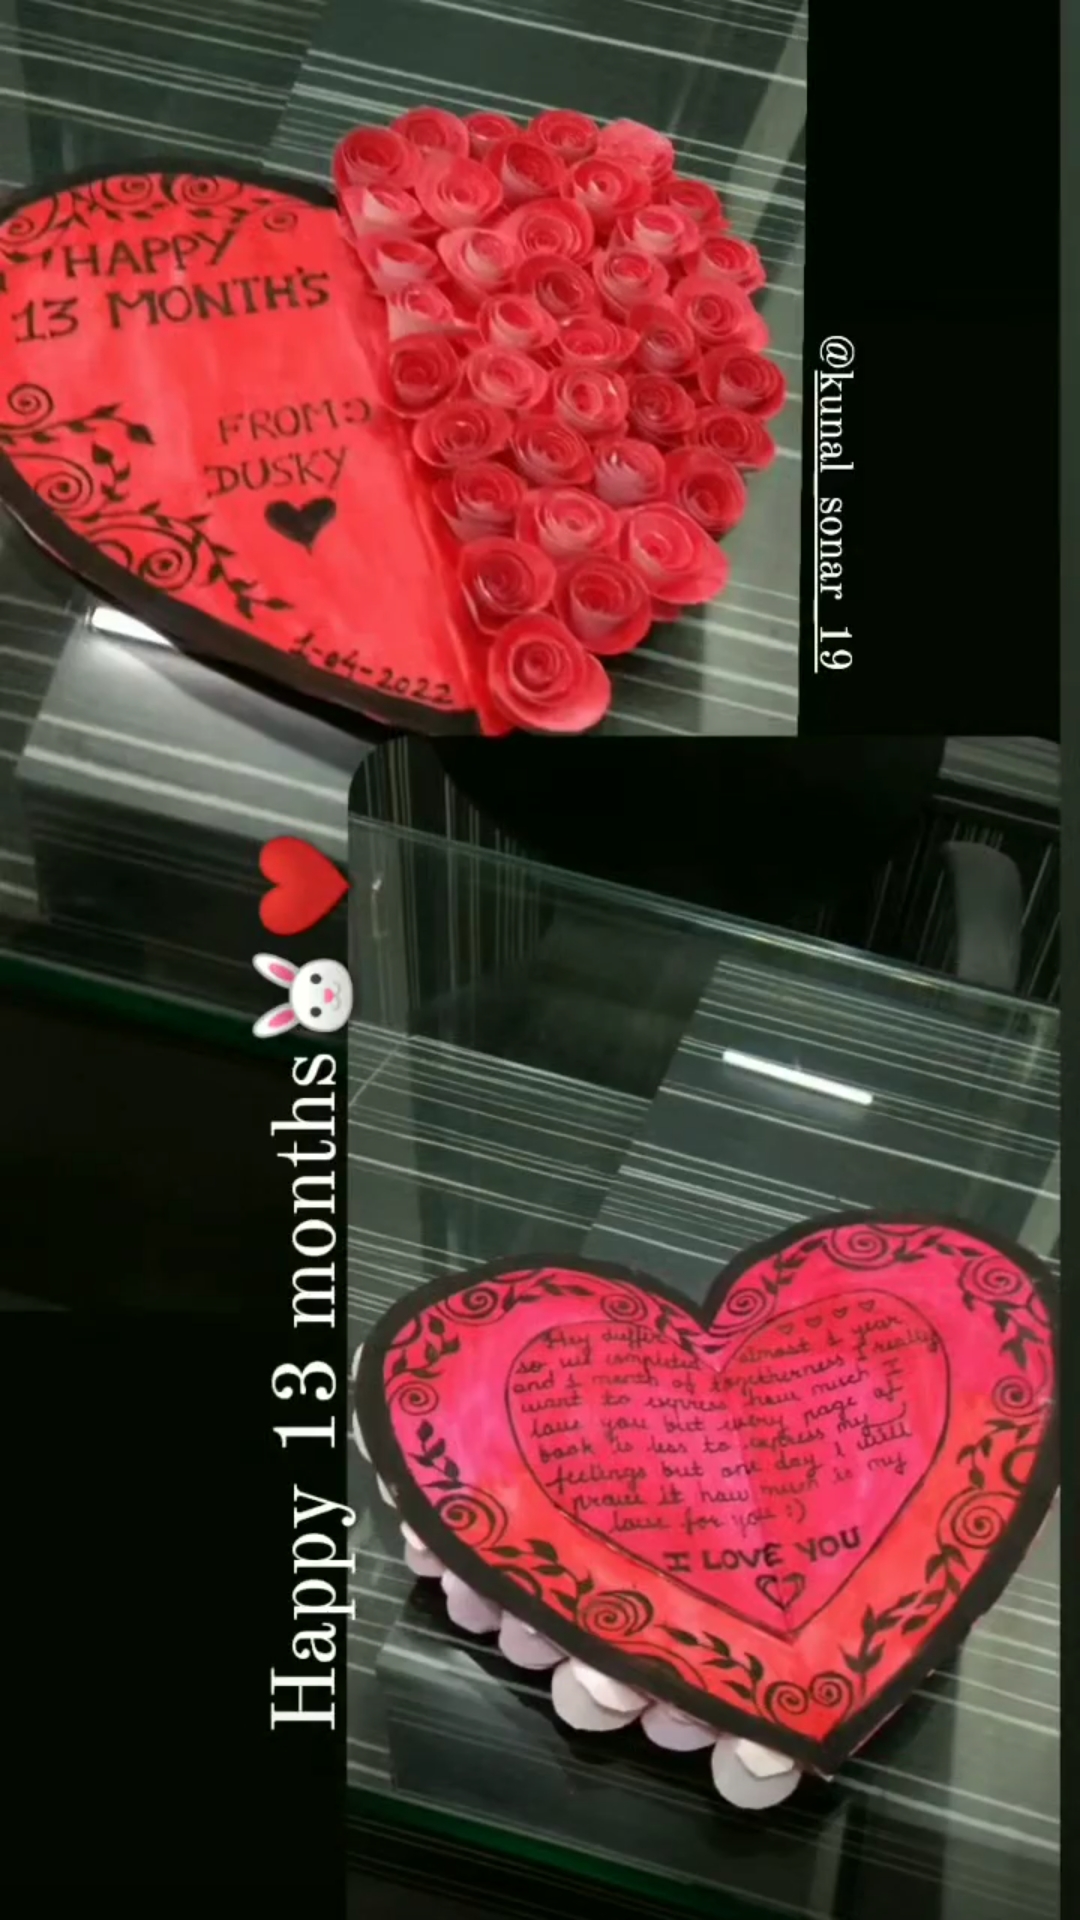 HAPPY
13 MONTH'S
FROM:)
DUSKY
1-04-2022
@kunal_sonar_19
Happy 13 months
Hey duffer almost 1 year
so we completed
and 1 month of togetherness I really
want to express how much I
love you but every page of
book is less to express my
feelings but one day I will
prove it how much is my
love for you :)
I LOVE YOU